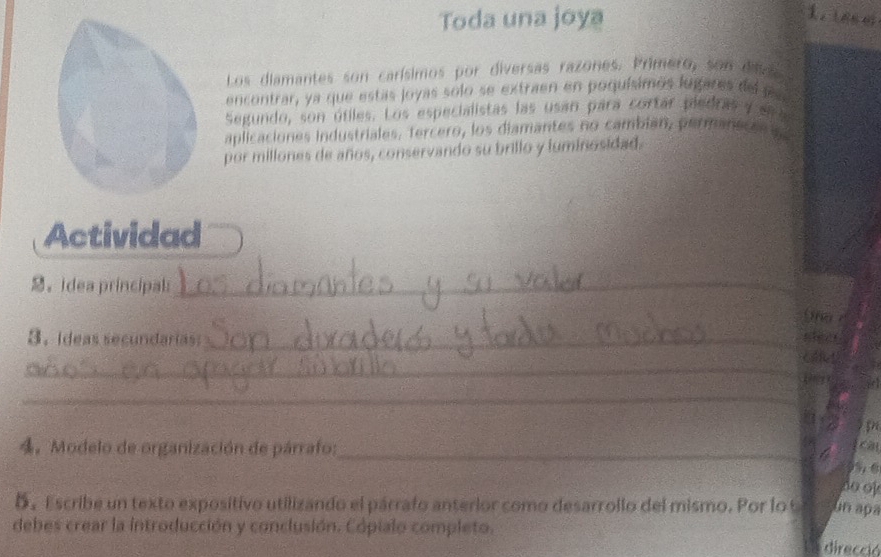 Toda una joya
Los diamantes son carísimos por diversas razones. Primero, son
encontrar, ya que estas joyas solo se extraen en poquísimos lugares del
Segundo, son útiles. Los especialistas las usan para cortar piedras y
aplicaciones industriales. Tercero, los diamantes no cambian, permanecen
por millones de años, conservando su brillo y luminosidad.
Actividad
2. Idea principal: Los diamantes y su valor
3. Ideas secundarias: Son duraderos y tarda muchos
años en apagar su brillo
4. Modelo de organización de párrafo:
5. Escribe un texto expositivo utilizando el párrafo anterior como desarrollo del mismo. Por lo
debes crear la introducción y conclusión. Cópialo completo.
Una
un apa
direcció